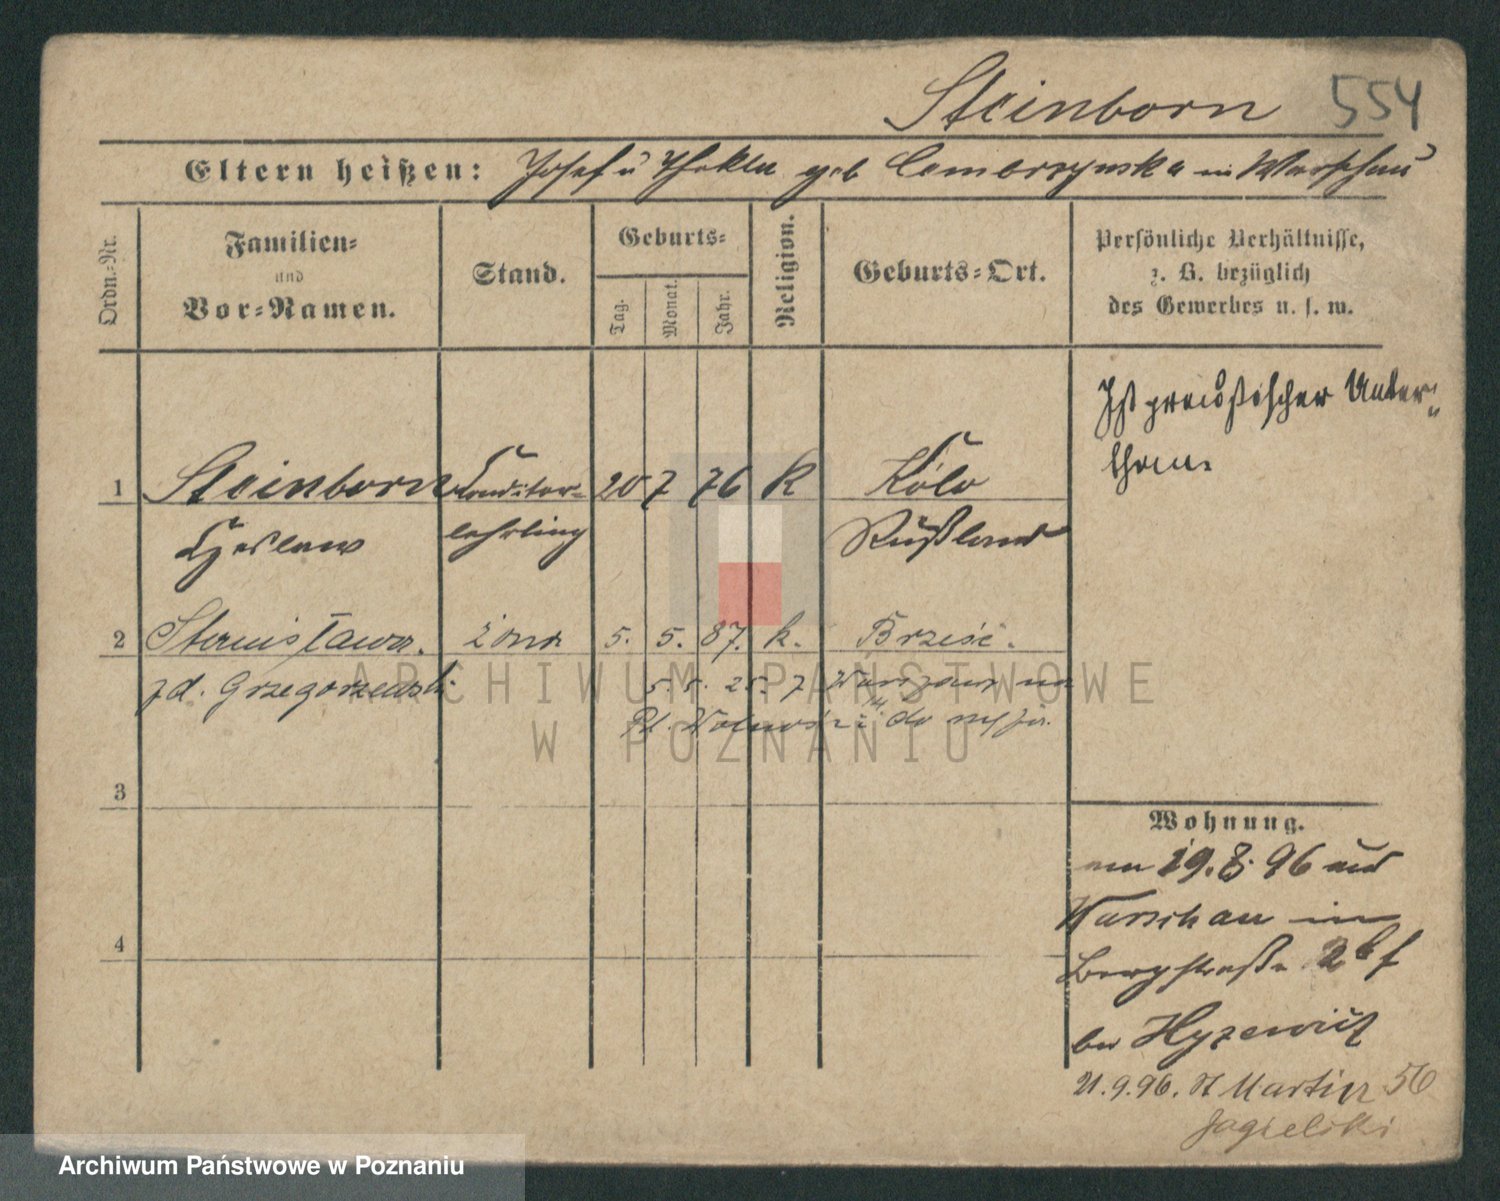 Steinborn 554
Eltern heißen: Josef u Thekla geb Cembrzynska in Warschau
Ordn.=Nr.
Familien=
und
Vor=Namen.
Stand.
Geburts=
Tag.
Monat.
Jahr.
Religion.
Geburts=Ort.
Persönliche Verhältnisse,
z. B. bezüglich
des Gewerbes u. s. w.
Ist preußischer Unter=
than.
1 Steinborn Conditor= 20 7 76 K Kolo
Czeslaw lehrling Rußland
2 Stanisława. żona 5. 5. 87. k. Brześć.
zd. Grzegorzewski 5.5. 25. z Warszawy na
Pl. Wolności 14
3
4
Wohnung.
am 19.8.96 aus
Warschau in
Bergstraße 2b f
bei Hyzewicz
21.9.96. St Martin 56
Jagielski
ARCHIWUM PAŃSTWOWE
W POZNANIU
Archiwum Państwowe w Poznaniu